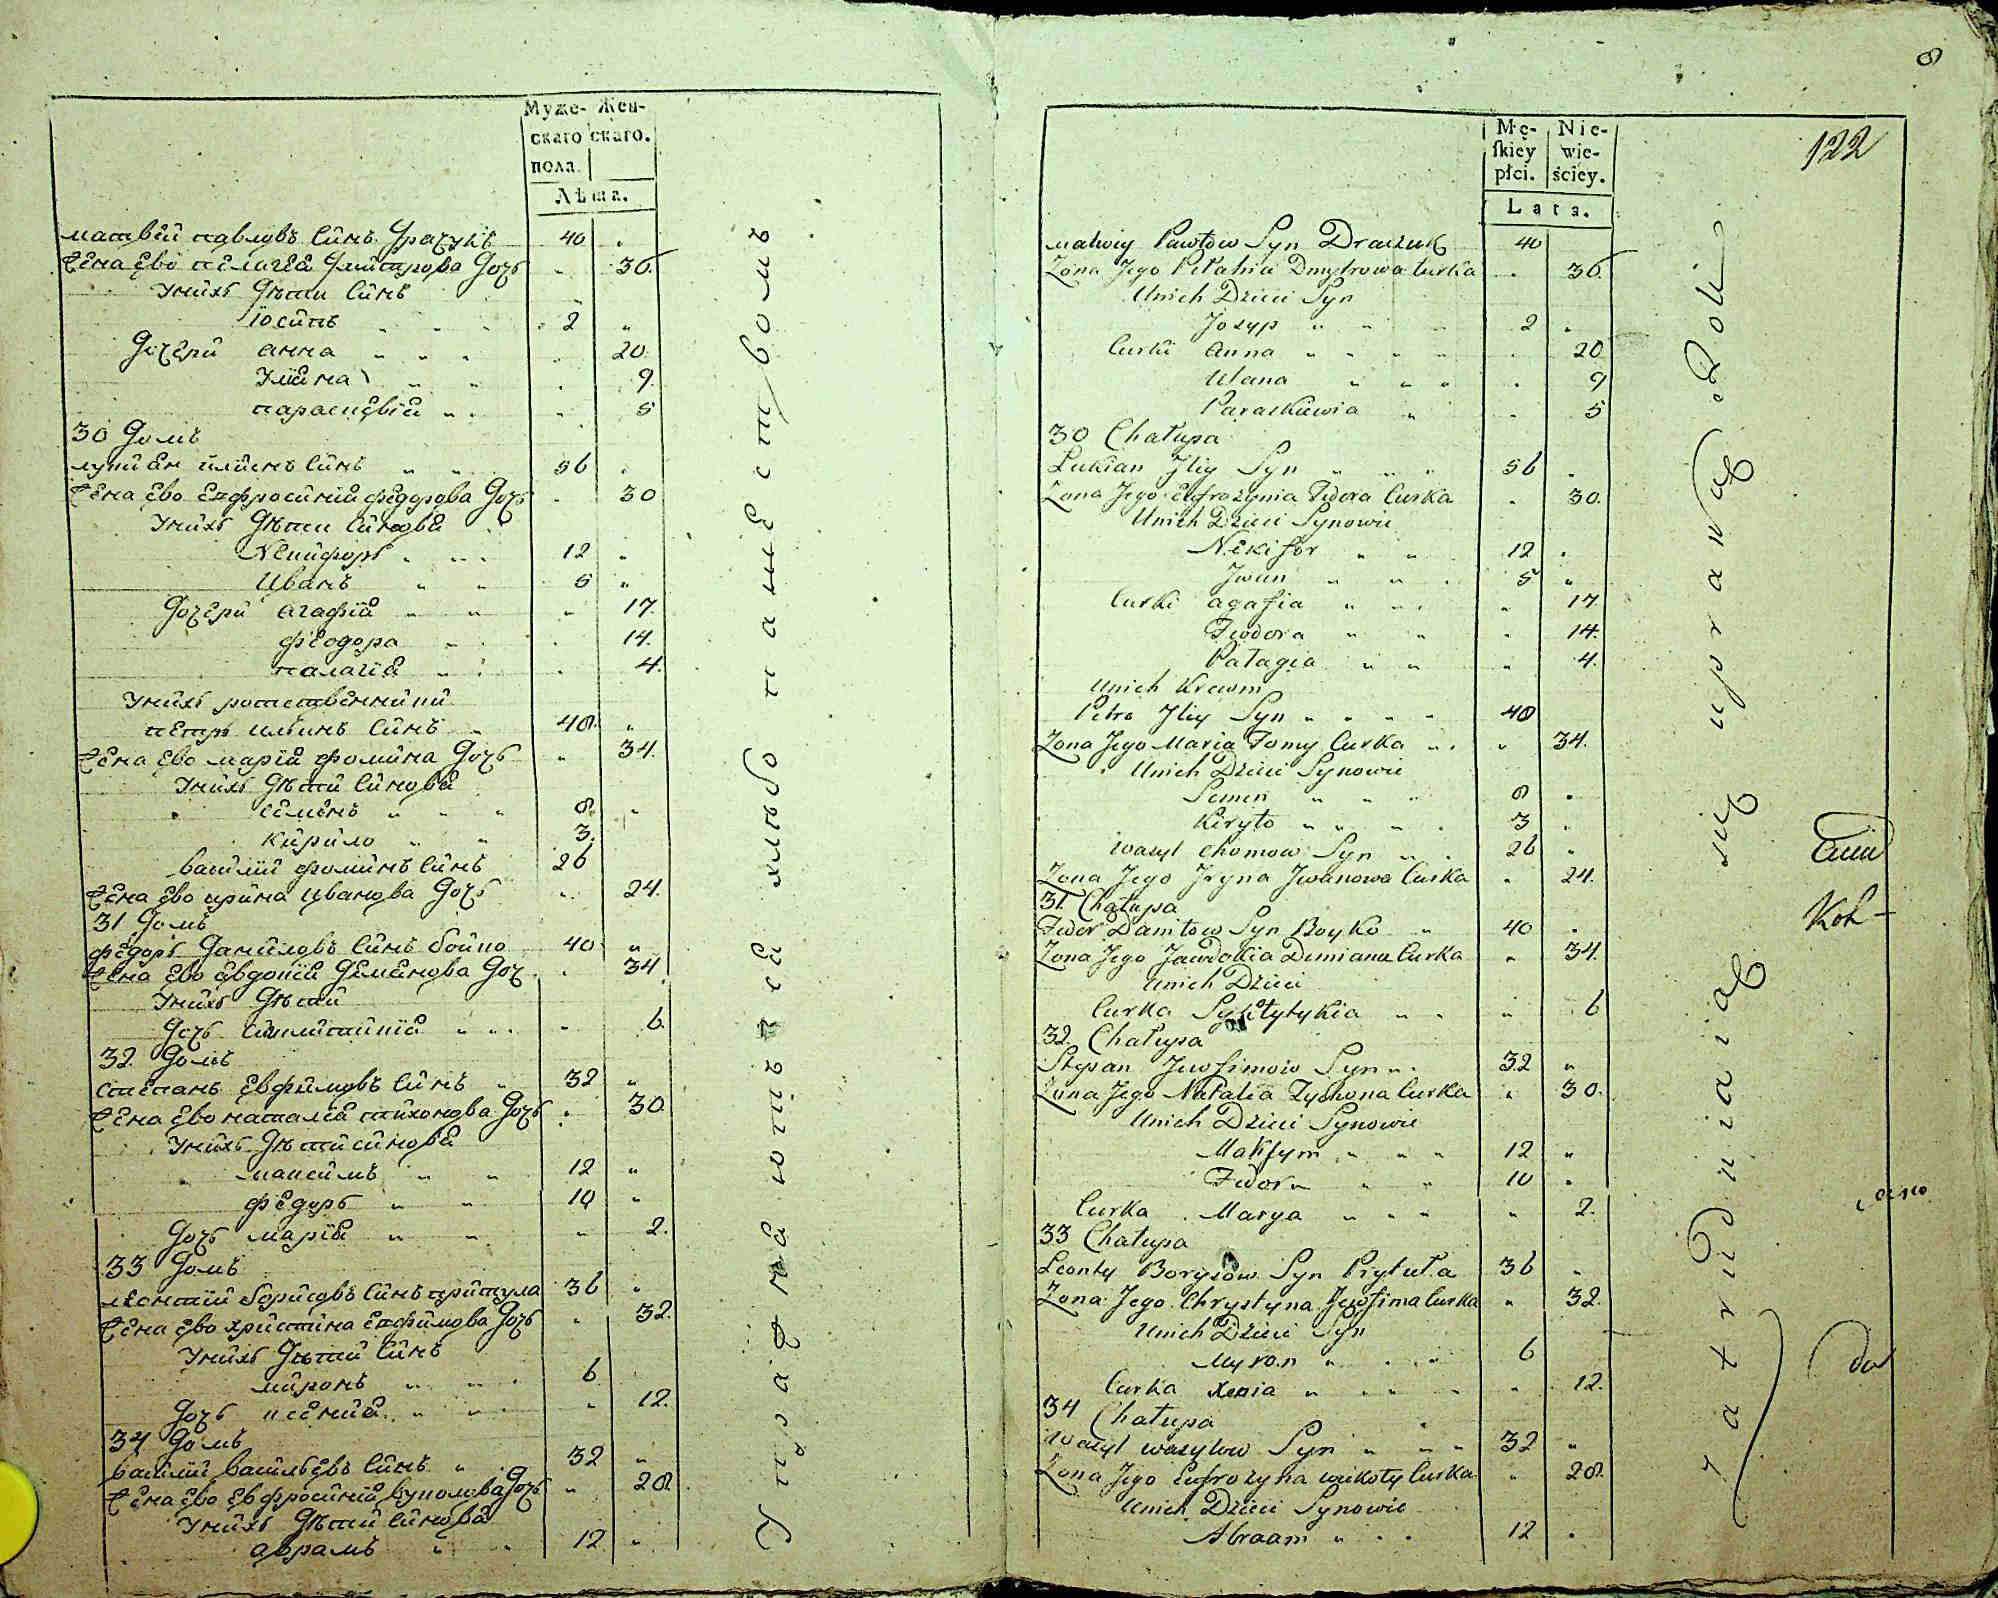 Муже- Жен-
скаго скаго.
пола.
Лѣта.
матвій павловъ синъ драчукъ 40 „
жена ево пелагея дмитрова дочь „ 36.
у нихъ дѣти синъ
іосипъ „ „ „ 2 „
дочери анна „ „ „ „ 20.
улiяна „ „ „ 9.
параскевія „ „ „ 5
30 домъ
лукиян илиенъ синъ „ „ 56 „
жена ево ефросиния федорова дочь „ 30
у нихъ дѣти синовя
Никифоръ „ „ „ 12 „
иванъ „ „ 5 „
дочери агафія „ „ „ 17.
феодора „ „ 14.
палагія „ „ „ 4.
у нихъ
петръ ильинъ синъ „ 48. „
жена ево марія фомина дочь „ 34.
у нихъ дѣти синовя
семенъ „ „ „ 8. „
кирило „ „ 3.
василий фоминъ синъ 26
жена ево ирина иванова дочь „ 24.
31 домъ
федоръ данiловъ синъ бойко 40 „
жена ево авдокія деменова доч „ 34
у нихъ дѣти
дочь „ „ „ 6.
32 домъ
степанъ евфимовъ синъ „ 32 „
жена ево наталия тихонова дочь „ 30
у нихъ дѣти синовя
максимъ „ „ 12 „
федоръ „ „ 10 „
дочь марія „ „ „ 2.
33 домъ
леонтий борисовъ синъ притула 36 „
жена ево христина евфимова дочь „ 32.
у нихъ дѣти синъ
миронъ „ „ 6
дочь ксения „ „ „ 12.
34 домъ
василий васильевъ синъ „ 32 „
жена ево евфросиния вуколова дочь „ 28.
у нихъ дѣти синовя
аврамъ „ „ 12 „
8
122
Mę- Nie-
skiey wie-
płci. ściey.
Lata.
Matwiy Pawłow Syn Draczuk 40
Zona Jego Pełahia Dmytrowa Curka „ 36
Unich Dzieci Syn
Jozyp „ „ „ 2 „
Curki Anna „ „ „ „ 20
Ulana „ „ „ „ 9
Paraskiewia „ „ 5
30 Chałupa
Lukian Jliy Syn „ „ „ 56 „
Zona Jego Eufrozynia Fedora Curka „ 30.
Unich Dzieci Synowie
Nekifor „ „ 12 „
Jwan „ „ „ 5 „
Curki agafia „ „ „ „ 17.
Fiodora „ „ „ 14.
Pałagia „ „ „ 4.
Unich Krewni
Petro Jliy Syn „ „ „ „ 48
Zona Jego Maria Fomy Curka „ „ „ 34.
Unich Dzieci Synowie
Semen „ „ „ 8 „
Kiryło „ „ „ „ 3 „
Wasyl Chomow Syn „ „ 26 „
Zona Jego Jryna Jwanowa Curka „ 24.
31. Chałupa
Fedor Daniłow Syn Boyko „ 40 „
Zona Jego Jawdokia Demiana Curka „ 34.
Unich Dzieci
Curka „ „ „ 6
32. Chałupa
Stepan Jewfimow Syn „ „ 32 „
Zona Jego Natalia Tychona Curka „ 30.
Unich Dzieci Synowie
Maksym „ „ „ 12 „
Fedor „ „ „ 10 „
Curka Marya „ „ „ „ 2.
33 Chałupa
Leonty Borysow Syn Prytuła 36 „
Zona Jego Chrystyna Jewfima Curka „ 32.
Unich Dzieci Syn
Myron „ „ „ 6
Curka Xenia „ „ „ „ „ 12.
34 Chałupa
Wasyl Wasylow Syn „ „ „ 32 „
Zona Jego Eufrozyna Wukoły Curka „ 28.
Unich Dzieci Synowie
Abraam „ „ „ 12 „
Zatrudniaią się uprawą Roli.